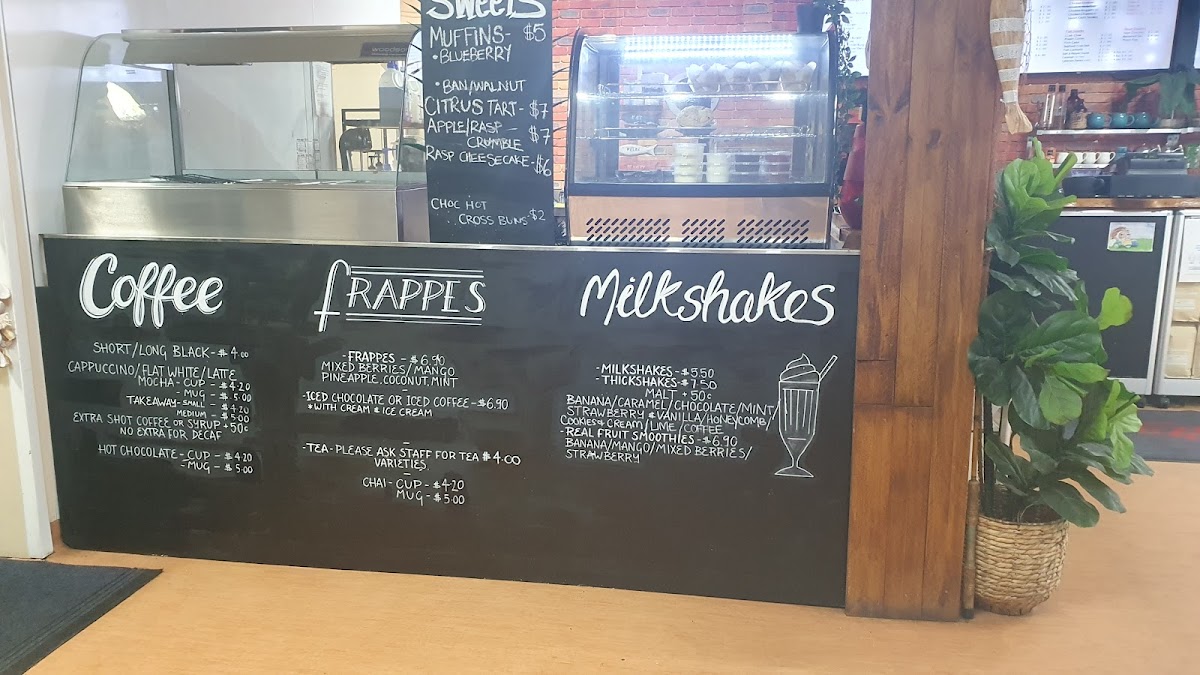 SWEETS
MUFFINS- $5
• BLUEBERRY
• BAN/WALNUT
CITRUS TART- $7
APPLE/RASP - $7
CRUMBLE
RASP CHEESECAKE-$6
CHOC HOT
CROSS BUNS-$2
Coffee
SHORT/LONG BLACK-$4.00
CAPPUCCINO/FLAT WHITE/LATTE
MOCHA-CUP - $4.20
MUG - $5.00
TAKEAWAY-SMALL - $4.20
MEDIUM - $5.00
EXTRA SHOT COFFEE OR SYRUP +50c
NO EXTRA FOR DECAF
HOT CHOCOLATE-CUP-$4.20
-MUG-$5.00
fRAPPES
-FRAPPES - $6.90
MIXED BERRIES/MANGO
PINEAPPLE,COCONUT,MINT
-
-ICED CHOCOLATE OR ICED COFFEE-$6.90
*WITH CREAM & ICE CREAM
-
-TEA-PLEASE ASK STAFF FOR TEA $4.00
VARIETIES
-
CHAI-CUP-$4.20
MUG-$5.00
Milkshakes
-MILKSHAKES-$5.50
-THICKSHAKES-$7.50
MALT +50c
BANANA/CARAMEL/CHOCOLATE/MINT/
STRAWBERRY & VANILLA/HONEYCOMB/
COOKIES & CREAM/LIME/COFFEE
-REAL FRUIT SMOOTHIES-$6.90
BANANA/MANGO/MIXED BERRIES/
STRAWBERRY